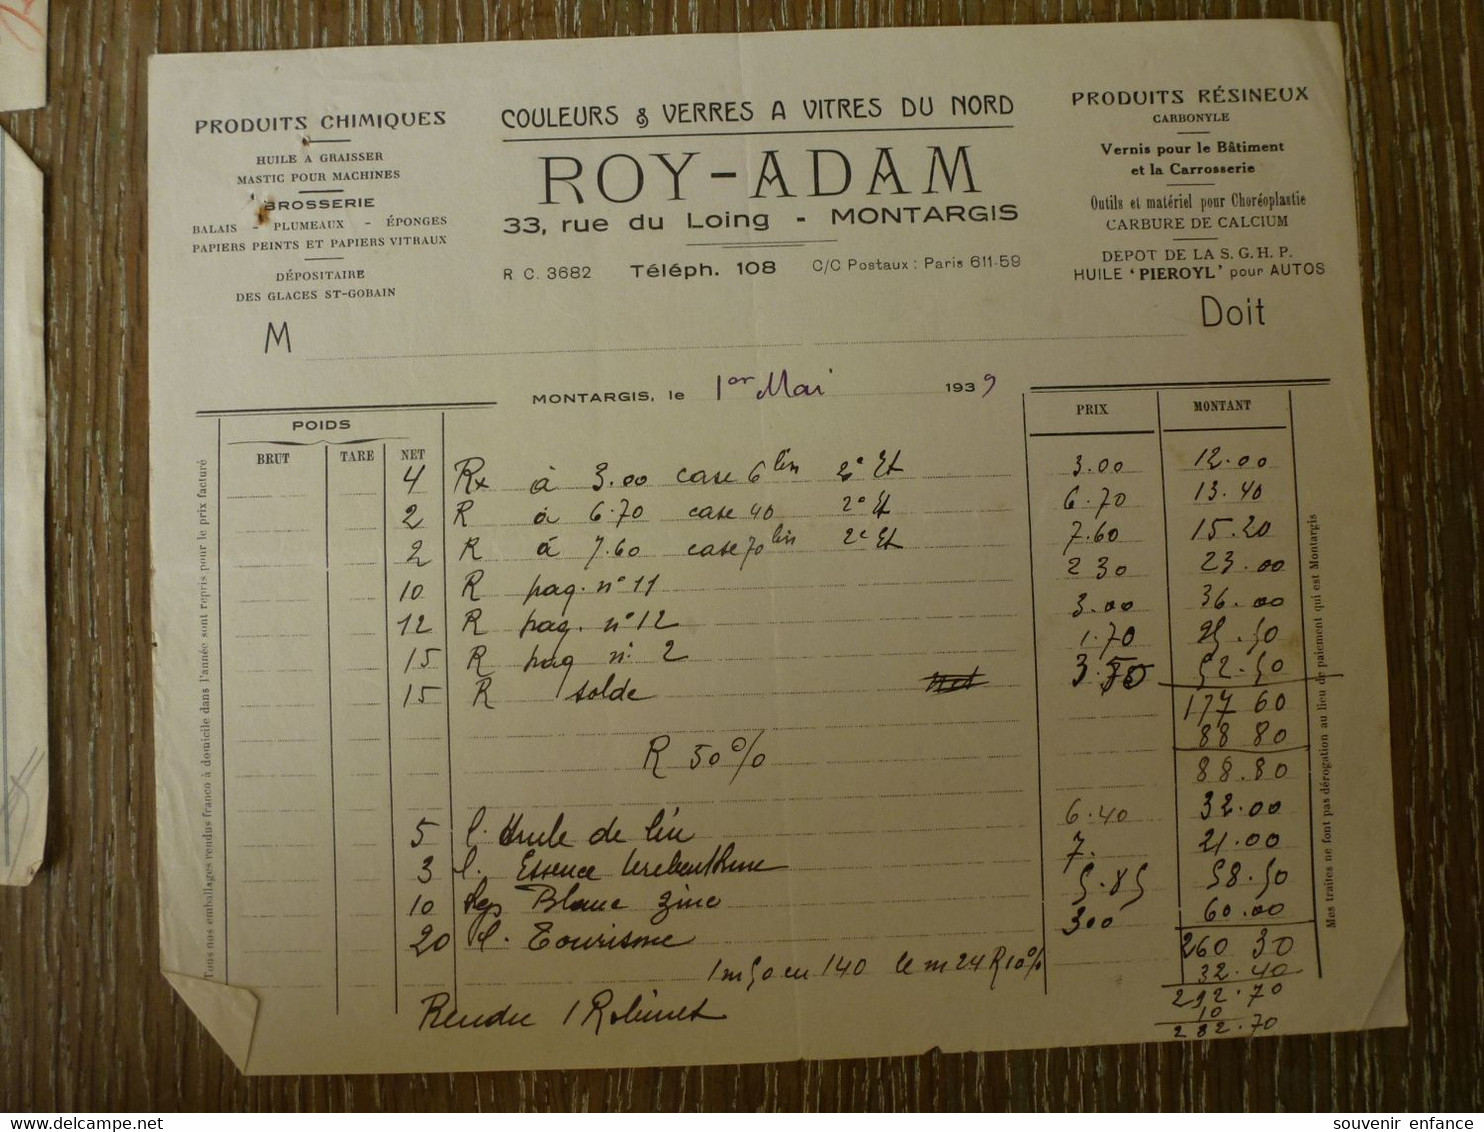 PRODUITS CHIMIQUES
HUILE A GRAISSER
MASTIC POUR MACHINES
BROSSERIE
BALAIS - PLUMEAUX - ÉPONGES
PAPIERS PEINTS ET PAPIERS VITRAUX
DÉPOSITAIRE
DES GLACES ST-GOBAIN
COULEURS & VERRES A VITRES DU NORD
ROY-ADAM
33, rue du Loing - MONTARGIS
R C. 3682 Téléph. 108 C/C Postaux : Paris 611-59
PRODUITS RÉSINEUX
CARBONYLE
Vernis pour le Bâtiment
et la Carrosserie
Outils et matériel pour Choréoplastie
CARBURE DE CALCIUM
DEPOT DE LA S. G. H. P.
HUILE 'PIEROYL' pour AUTOS
M Doit
MONTARGIS, le 1er Mai 1939
POIDS
BRUT TARE NET PRIX MONTANT
4 Rx à 3.00 case 6 lin 2e Et 3.00 12.00
2 R à 6.70 case 40 2o Et 6.70 13.40
2 R à 7.60 case 70 lin 2e Et 7.60 15.20
10 R paq. no 11 2 30 23.00
12 R paq. no 12 3.00 36.00
15 R paq n. 2 1.70 25.50
15 R solde 3.50 52.50
177 60
R 50% 88 80
88.80
5 l. Huile de lin 6.40 32.00
3 l. Essence terebenthine 7. 21.00
10 kgs Blanc zinc 5.85 58.50
20 l. Tourisme 300 60.00
260 30
1m50 en 140 le m 24 R 10% 32.40
292.70
Rendu 1 Robinet 10
282.70
Tous nos emballages rendus franco à domicile dans l'année sont repris pour le prix facturé
Mes traites ne font pas dérogation au lieu de paiement qui est Montargis
souvenir enfance